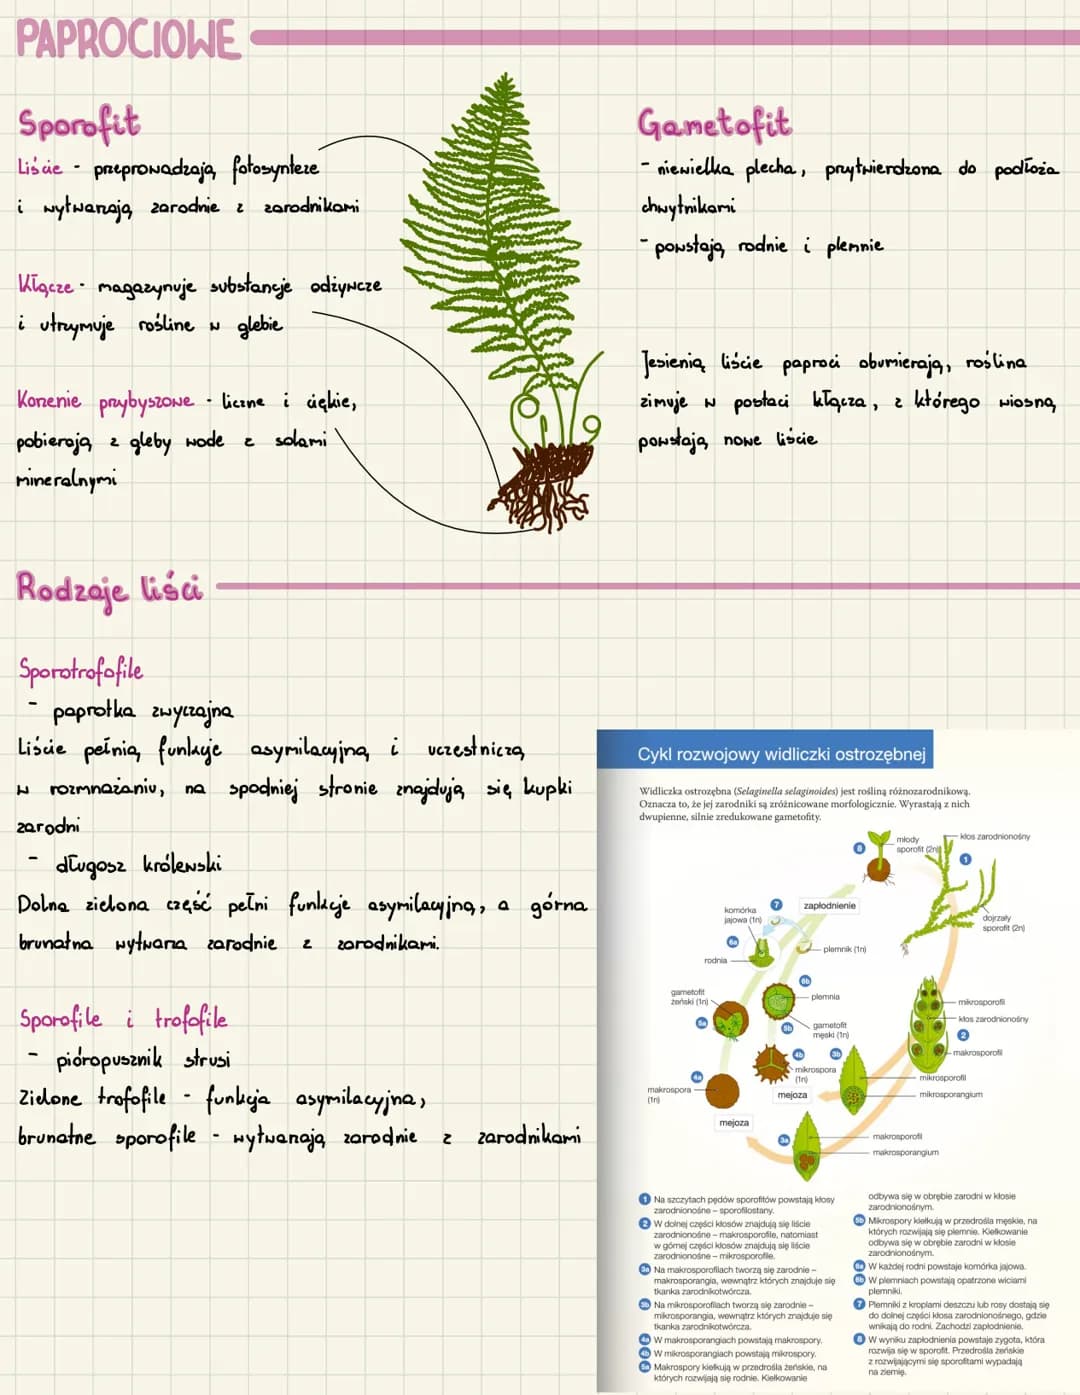 PAPROCIOWE
Sporofit
Liście - przeprowadzają fotosynteze
i wytwarzają zarodnie z zarodnikami
Kłącze - magazynuje substancje odżywcze
i utrzymuje rośline w glebie
Korzenie przybyszowe - liczne i ciękie,
pobierają z gleby wode z solami
mineralnymi
Gametofit
- niewielka plecha, przytwierdzona do podłoża
chwytnikami
- powstają rodnie i plemnie
Jesienią liście paproci obumierają, roślina
zimuje w postaci kłącza, z którego wiosną
powstają nowe liście
Rodzaje liści
Sporotrofofile
- paprotka zwyczajna
Liście pełnią funkcje asymilacyjną i uczestniczą
w rozmnażaniu, na spodniej stronie znajdują się kupki
zarodni
- długosz królewski
Dolna zielona część pełni funkcje asymilacyjną, a górna
brunatna wytwarza zarodnie z zarodnikami.
Sporofile i trofofile
- pióropusznik strusi
Zielone trofofile - funkcja asymilacyjna,
brunatne sporofile - wytwarzają zarodnie z zarodnikami
Cykl rozwojowy widliczki ostrozębnej
Widliczka ostrozębna (Selaginella selaginoides) jest rośliną różnozarodnikową.
Oznacza to, że jej zarodniki są zróżnicowane morfologicznie. Wyrastają z nich
dwupienne, silnie zredukowane gametofity.
8
młody
sporofit (2n)
kłos zarodnionośny
1
dojrzały
sporofit (2n)
komórka
jajowa (1n)
7
zapłodnienie
6a
plemnik (1n)
rodnia
6b
plemnia
gametofit
żeński (1n)
5a
5b
gametofit
męski (1n)
mikrosporofil
kłos zarodnionośny
2
makrosporofil
4b
3b
mikrospora
(1n)
mikrosporofil
mikrosporangium
4a
makrospora
(1n)
mejoza
mejoza
3a
makrosporofil
makrosporangium
1 Na szczytach pędów sporofitów powstają kłosy
zarodnionośne – sporofilostany.
2 W dolnej części kłosów znajdują się liście
zarodnionośne – makrosporofile, natomiast
w górnej części kłosów znajdują się liście
zarodnionośne – mikrosporofile.
3a Na makrosporofilach tworzą się zarodnie –
makrosporangia, wewnątrz których znajduje się
tkanka zarodnikotwórcza.
3b Na mikrosporofilach tworzą się zarodnie –
mikrosporangia, wewnątrz których znajduje się
tkanka zarodnikotwórcza.
4a W makrosporangiach powstają makrospory.
4b W mikrosporangiach powstają mikrospory.
5a Makrospory kiełkują w przedrośla żeńskie, na
których rozwijają się rodnie. Kiełkowanie
odbywa się w obrębie zarodni w kłosie
zarodnionośnym.
5b Mikrospory kiełkują w przedrośla męskie, na
których rozwijają się plemnie. Kiełkowanie
odbywa się w obrębie zarodni w kłosie
zarodnionośnym.
6a W każdej rodni powstaje komórka jajowa.
6b W plemniach powstają opatrzone wiciami
plemniki.
7 Plemniki z kroplami deszczu lub rosy dostają się
do dolnej części kłosa zarodnionośnego, gdzie
wnikają do rodni. Zachodzi zapłodnienie.
8 W wyniku zapłodnienia powstaje zygota, która
rozwija się w sporofit. Przedrośla żeńskie
z rozwijającymi się sporofitami wypadają
na ziemię.